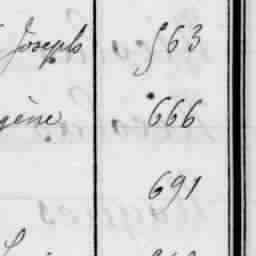 Joseph 563
gène 666
691